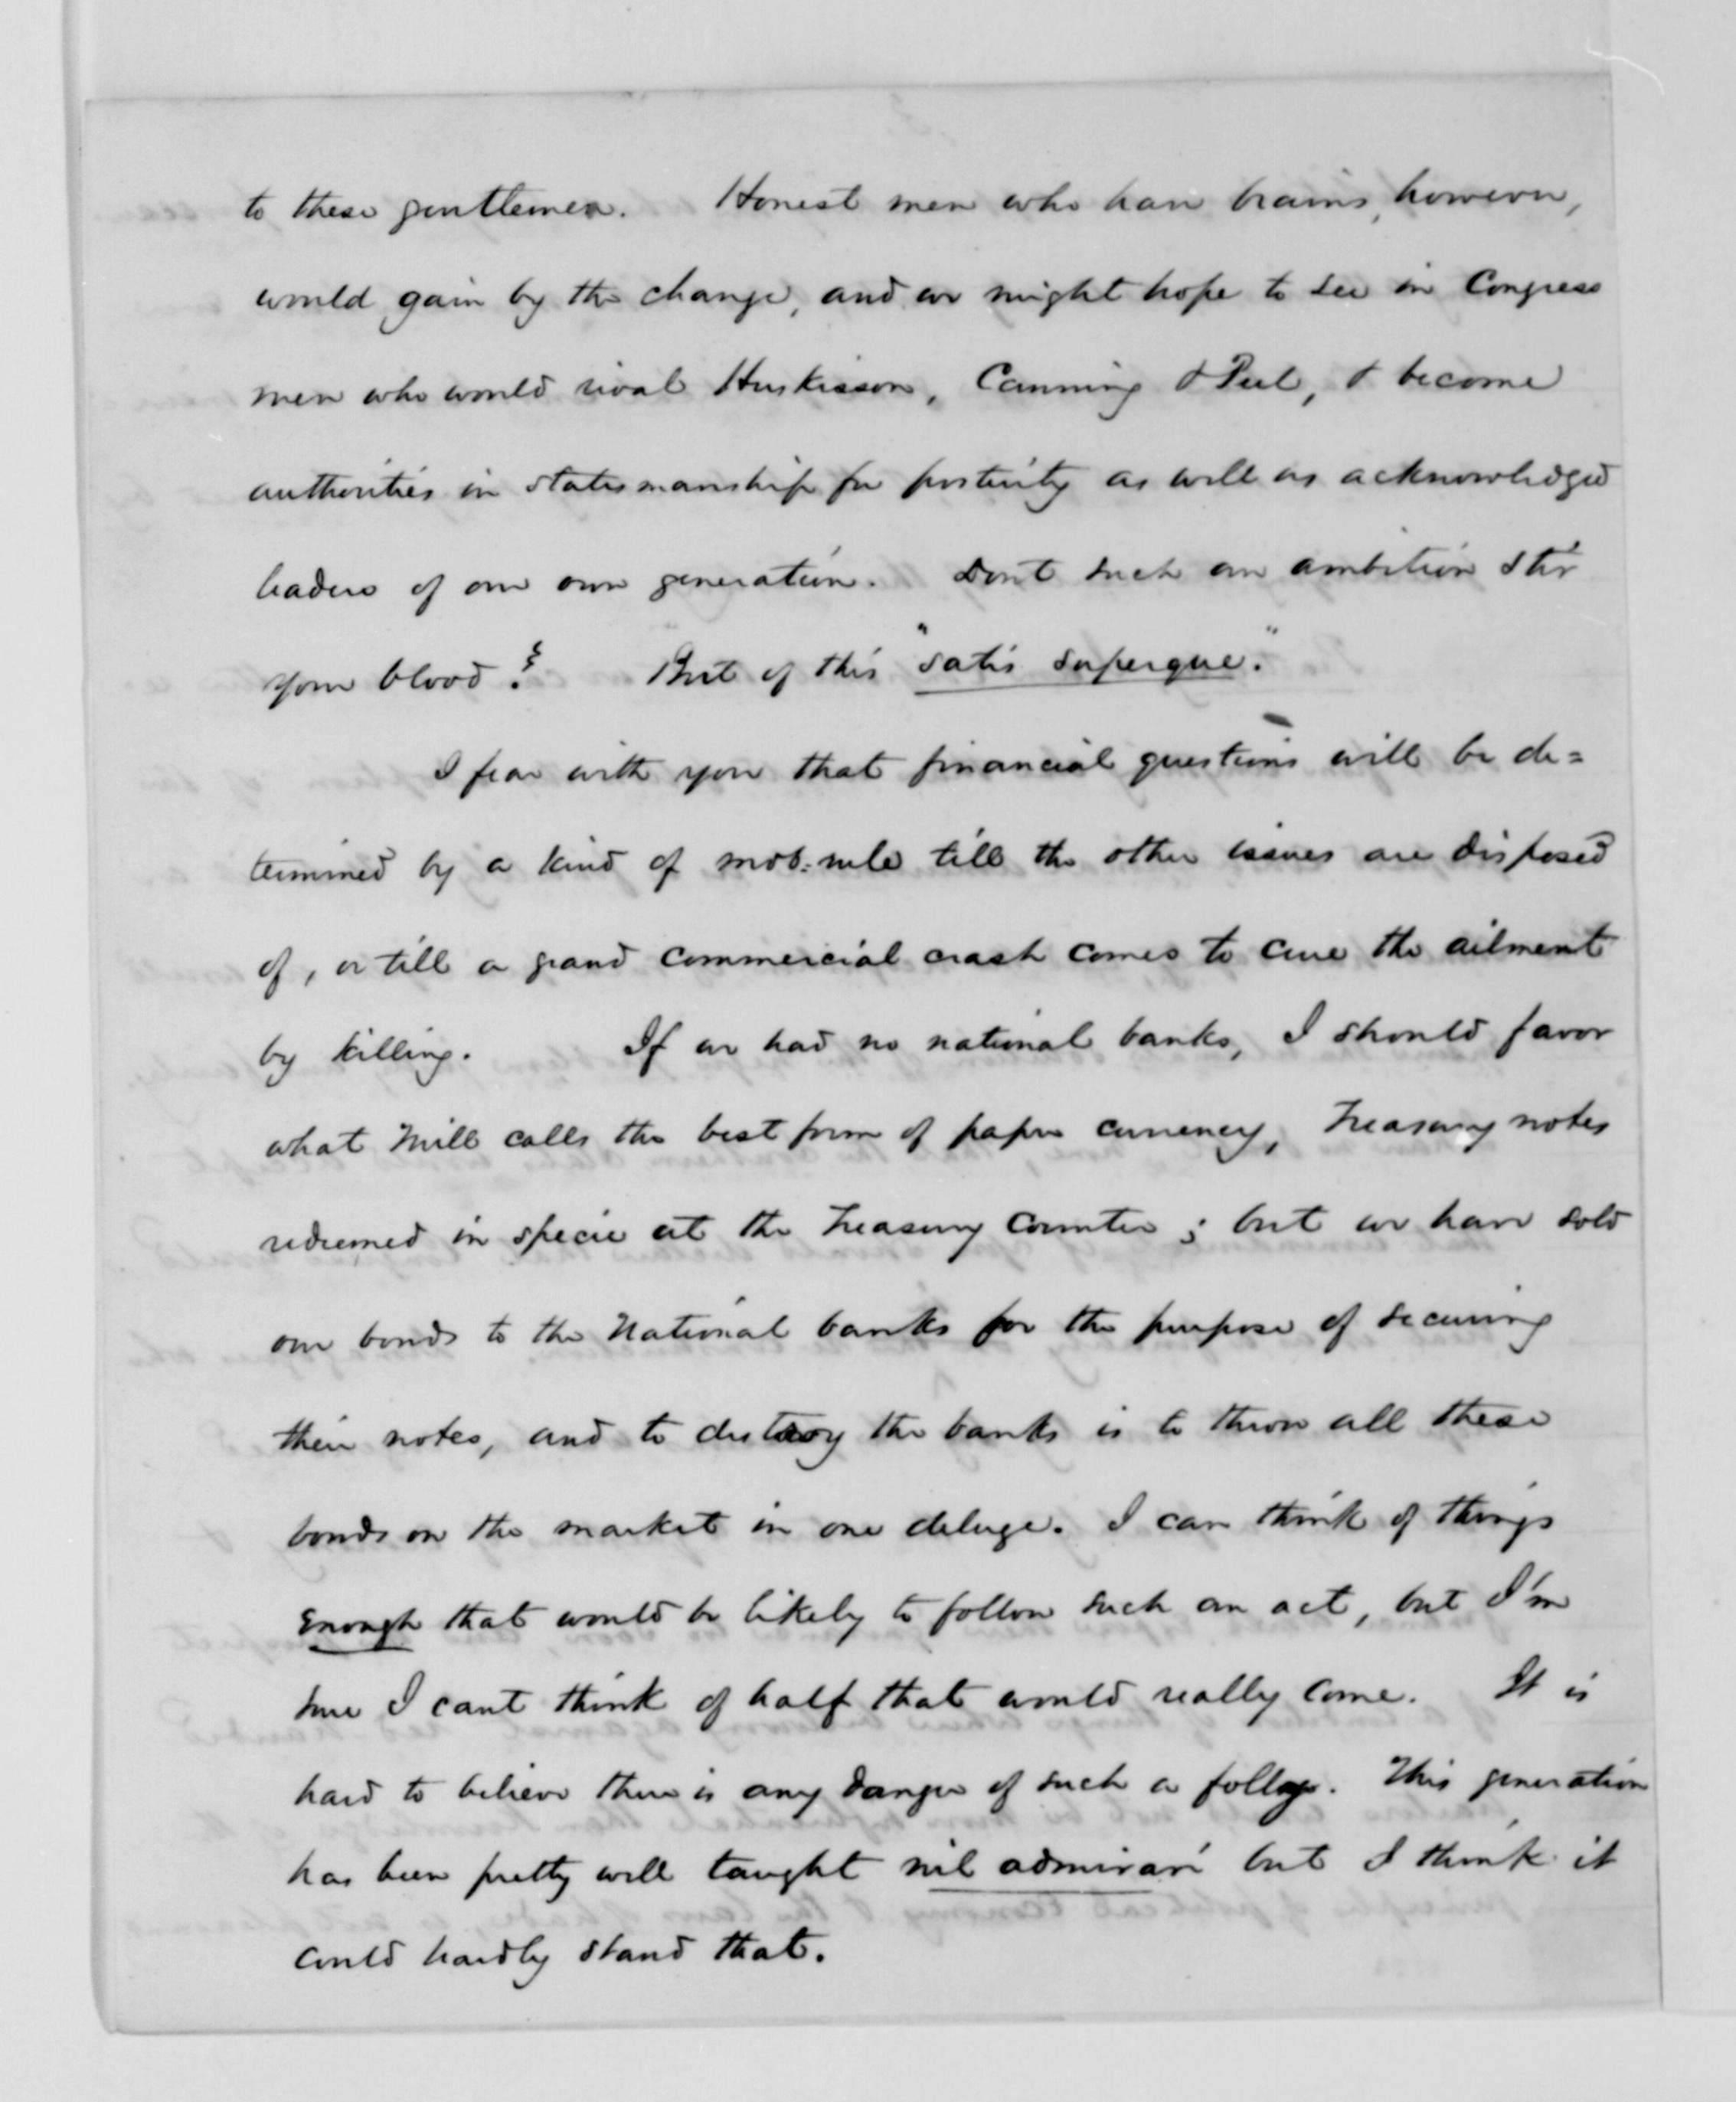 to these gentlemen. Honest men who have brains, however,
would gain by the change, and we might hope to see in Congress
men who would rival Huskisson, Canning & Peel, & become
authorities in statesmanship for posterity as well as acknowledged
leaders of our own generation. Dont such an ambition stir
your blood? But of this "satis superque."
I fear with you that financial questions will be de=
termined by a kind of mob-rule till the other issues are disposed
of, or till a grand commercial crash comes to cure the ailment
by killing. If we had no national banks, I should favor
what Mill calls the best form of paper currency, Treasury notes
redeemed in specie at the Treasury counter; but we have sold
our bonds to the National banks for the purpose of securing
their notes, and to destroy the banks is to throw all these
bonds on the market in one deluge. I can think of things
enough that would be likely to follow such an act, but I'm
sure I cant think of half that would really come. It is
hard to believe there is any danger of such a folly. This generation
has been pretty well taught nil admirari but I think it
could hardly stand that.